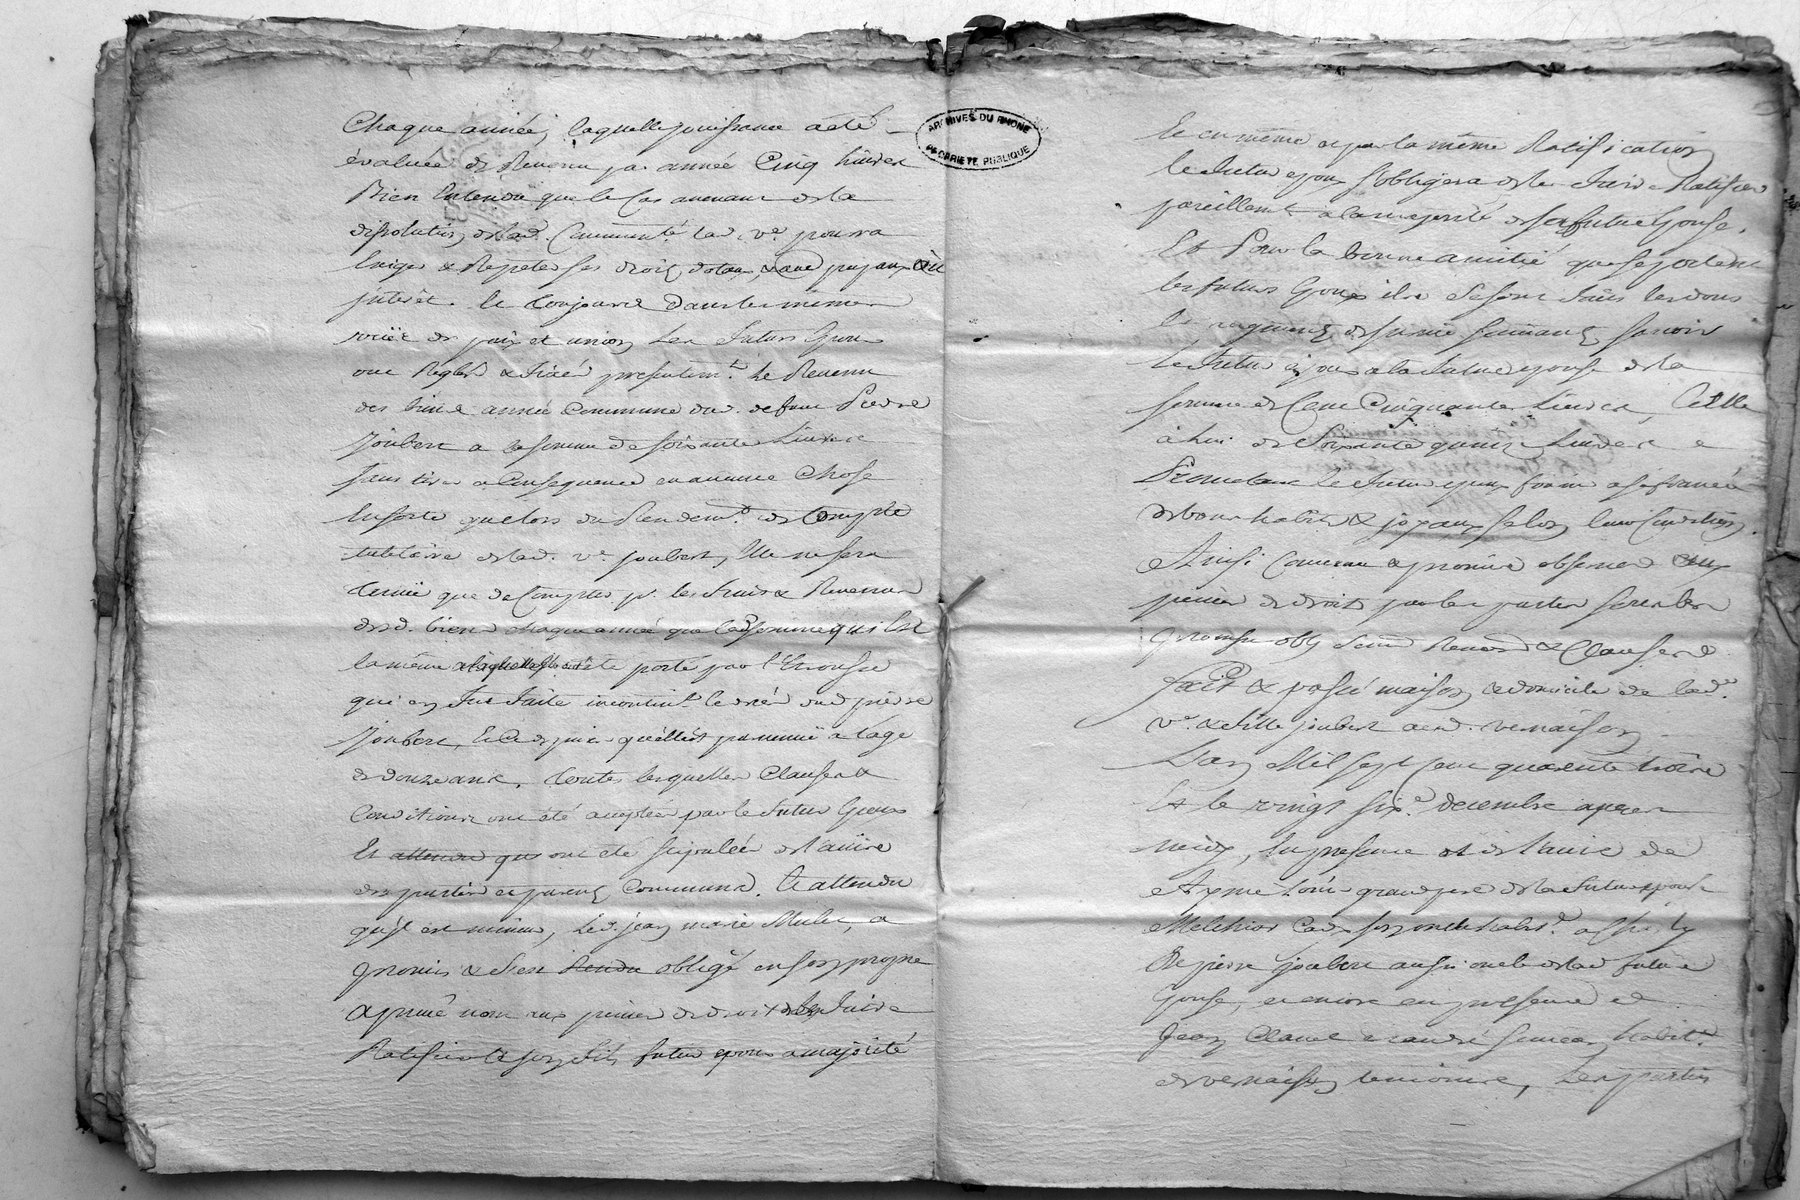 Chaque année, laquelle jouissance a été
évaluée de Revenu par année Cinq livres
Bien Entendu que le Cas avenant de la
dissolution de lad. Communté. lad. ve. pourra
Exiger & Repeter ses droits dotaux
interêt. Et toujours dans le même
de paix et union Les futurs Epoux
ont Reglés & fixés presentemt. Le Revenu
des biens année Commune dud. defunt Pierre
Joubert a la somme de soixante Livres
sans tirer a Consequence en aucune Chose
Ensorte que lors du Rendemt. de Compte
tutelaire de lad. ve. Joubert, Elle ne sera
tenuë que de Compter pr. les fruits & Revenus
desd. biens chaque année que lad. somme qui Est
la même a laquelle a été porté par l'Encousse
qui en fut faite incontint. le décé dud. pierre
Joubert, Et ce depuis qu'elle est parvenuë a l'age
de douze ans, toutes lesquelles Clauses &
Conditions ont été acceptées par le futur Epoux
Et attendu qui ont été stipulées de l'avis
des parties et parens Communs. Et attendu
qu'il est mineur, led. jean marie Mulet, a
promis & s'est Rendu obligé en son propre
& privé nom aux peines de droit de faire
Ratifier led. son fils futur epoux a majorité
ARCHIVES DU RHONE
PROPRIETE PUBLIQUE
Et en même & par la même Ratification
le futur epoux s'obligera de les faire Ratifier
pareillemt. a la majorité de sa future Epouse.
Et Pour la bonne amitié que se portent
les futurs Epoux ils se sont faits les dons
Et augments de survie suivants savoir
le futur époux a la future epouse de la
somme de Cent Cinquante Livres, Et Elle
à lui de Soixante quinze Livres
Promettant le futur epoux fournir a sa fiancée
de bons habits & joyaux selon leur Condition.
Ainsi Convenu & promis observer aux
peines de droits par les parties
promesse obligé soumis Renoncé & Clauses
fait & passé maison & domicile de lad.
ve. & fille joubert aud. vernaison
L'an Mil sept Cent quarante trois
Et le vingt sixe. decembre apres
midy, En presence et de l'avis de
Ayme grand pere de la future epouse
Melchior son oncle habt. a Charly
Et pierre Joubert aussi oncle de lad. future
Epouse, et encore en presence de
Jean Claude & andré habitt.
de vernaison temoins, Les parties